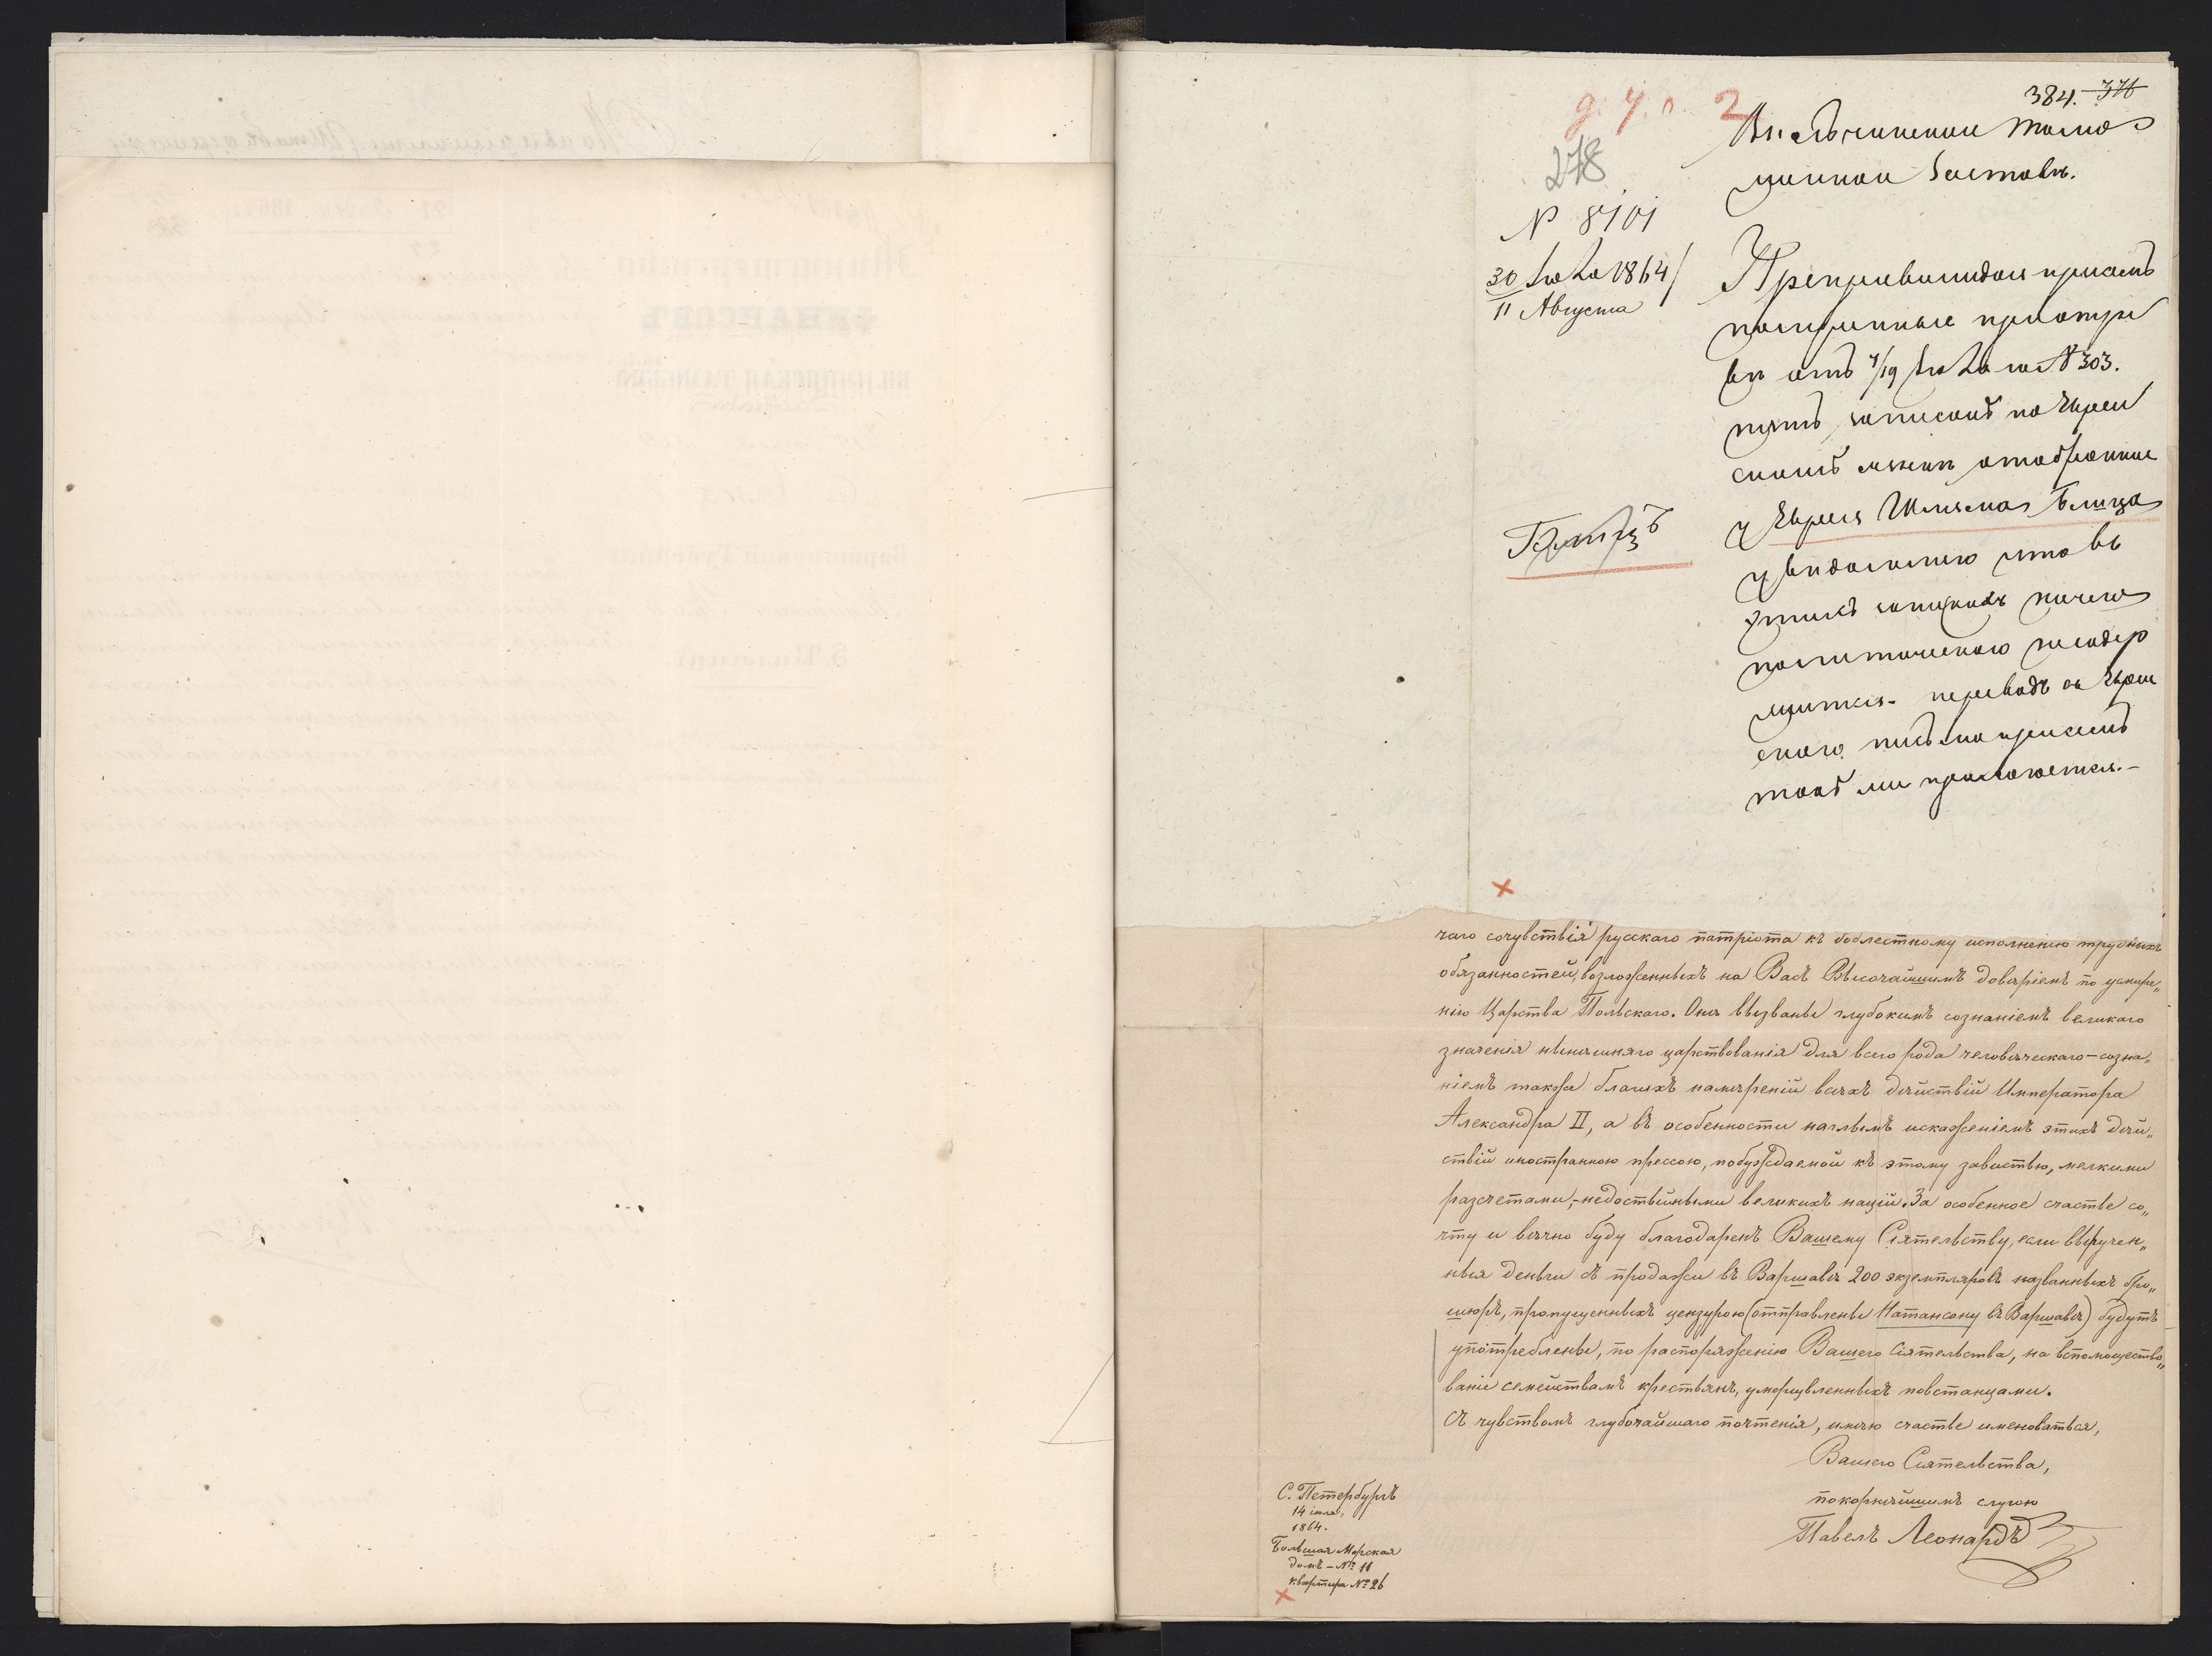 384. 376
д. У. п. 2
278
№ 8101
30 Іюля 1864
11 Августа
таможенной Заставѣ.
Препровождая присемъ
полученные при отзы
вѣ отъ 7/19 Іюля за № 303.
пять записокъ на Еврей
скомъ языкѣ отобранные
у Еврея Шлямы Блица
увѣдомляю что въ
этихъ запискахъ ничего
политическаго не содер
жится. переводъ съ Еврей
скаго письма при семъ
прилагается.-
Блицъ
чаго сочувствія русскаго патріота къ доблестному исполненію трудныхъ
обязанностей, возложенныхъ на Васъ Высочайшимъ довѣріемъ по усмире„
нію Царства Польскаго. Она вызваны глубокимъ сознаніемъ великаго
значенія нынѣшняго царствованія для всего рода человѣческаго – созна„
ніемъ также благихъ намѣреній всѣхъ дѣйствій Императора
Александра II, а въ особенности наглымъ искаженіемъ этихъ дѣй„
ствій иностранною прессою, побуждаемой къ этому завистью, мелкими
разсчетами,- недостойными великихъ націй. За особенное счастье со„
чту и вѣчно буду благодаренъ Вашему Сіятельству, если выручен„
ныя деньги съ продажи въ Варшавѣ 200 экземпляровъ названныхъ бро„
шюръ, пропущенныхъ цензурою (отправлены Натансону въ Варшавѣ) будутъ
употреблены, по распоряженію Вашего Сіятельства, на вспомощество„
ваніе семействамъ крестьянъ, умерщвленныхъ повстанцами.
Съ чувствомъ глубочайшаго почтенія, имѣю счастье именоваться,
Вашего Сіятельства,
покорнѣйшимъ слугою
Павелъ Леонардъ
С. Петербургъ
14 іюля,
1864.
Большая Морская
домъ – № 11
квартира № 26